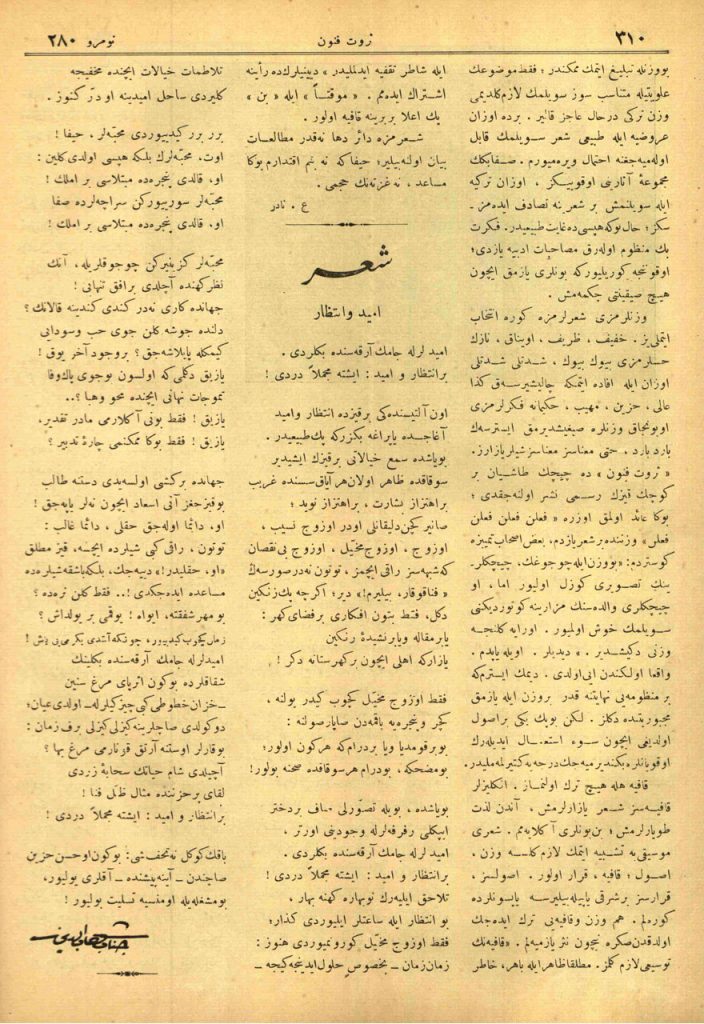 ٣١٠
ثروت فنون
نومرو ٢٨٠
بووزنله تبليغ ايتمك ممكندر ؛ فقط موضوعك
علويتيله متناسب سوز سويلمك لازم كلديمى
وزن تركى درحال عاجز قالير . برده اوزان
عروضيه ايله طبيعى شعر سويلمك قابل
اوله ميه جغنه احتمال ويره ميورم . صفابكك
مجموعۀ آثارينى اوقويبكز ، اوزان تركيه
ايله سويلنمش بر شعرينه تصادف ايده مز ـ
سكز ؛ حال بوكه هپسى ده غايت طبيعيدر . فكرت
بك منظوم اوله رق مصاحبات ادبيه يازدى ؛
اوقوننجه كوريليوركه بونلرى يازمق ايچون
هيچ صيقينتى چكمه مش .
وزنلرمزى شعرلرمزه كوره انتخاب
ايتملى يز . خفيف ، ظريف ، اويناق ، نازك
حسلرمزى بيوك بيوك ، شدتلى شدتلى
اوزان ايله افاده ايتمكه چاليشيرسه ق كذا
عالى ، حزين ، مهيب ، حكيمانه فكرلرمزى
اويونجاق وزنلره صيغيشديرمق ايسترسه ك
بارد بارد ، حتى معناسز معناسز شيلر يازارز .
« ثروت فنون » ده چيچك طاشيان بر
كوچك قيزك رسمى نشر اولنه جقدى ؛
بوكا عائد اولمق اوزره « فعلن فعلن فعلن
فعلن » وزننده بر شعر يازدم ، بعض اصحاب تميزه
كوستردم : « بووزن ايله چوجوغك ، چيچكلر ـ
ينك تصويرى كوزل اوليور اما ، او
چيچكلرى والده سنك مزارينه كوتورديكنى
سويلمك خوش اولميور . اورايه كلنجه
وزنى دكيشدير . » ديديلر . اويله يابدم .
واقعا اولكندن ايى اولدى . ديمك ايسترم كه
بر منظومه يى نهايتنه قدر بروزن ايله يازمق
مجبوريتنده دكلز . لكن بوبك يكى براصول
اولديغى ايچون سوء استعمال ايديله رك
اوقويانلره بكنديرميه جك درجه يه كتيرلمه مليدر .
قافيه هله هيچ ترك اولنماز . انكليزلر
قافيه سز شعر يازارلرمش ، آندن لذت
طويارلرمش ؛ بن بونلرى آكلايه مم . شعرى
موسيقى يه تشبيه ايتمك لازم كلسه وزن ،
اصول ؛ قافيه ، قرار اولور . اصولسز ،
قرارسز برشرقى ياپيله بيليرسه ياپسونلرده
كوره لم . هم وزن وقافيه يى ترك ايده جك
اولدقدن صكره نيچون نثر يازميه لم . « قافيه نك
توسيعى لازم كلمز . مطلقا ظاهر ايله باهر ، خاطر
ايله شاطر تقفيه ايدلمليدر » ديينلرك ده رأينه
اشتراك ايده مم . « موقتاً » ايله « بن »
پك اعلا بربرينه قافيه اولور .
شعرمزه دائر دها نه قدر مطالعات
بيان اولنه بيلير ، حيفاكه نه بنم اقتدارم بوكا
مساعد ، نه غزته نك حجمى .
ع . نادر
شعر
اميد وانتظار
اميد لرله جامك آرقه سنده بكلردى .
برانتظار و اميد : ايشته مجملاً دردى !
اون آلتيسنده كى برقيزده انتظار واميد
آغاجده ياپراغه بكزركه پك طبيعيدر .
بوياشده سمع خيالاتى برقيزك ايشيدير
سوقاقده ظاهر اولان هر آياق سسنده غريب
براهتزاز بشارت ، براهتزاز نويد ؛
صانير كچن دليقانلى اودر اوزوج نسيب ،
اوزوج ، اوزوج مخيل ، اوزوج بى نقصان
كه شبهه سز راقى ايچمز ، توتون نه در صورسه ك
« فناقوقار ، بيليرم !» دير ؛ اكرچه پك زنكين
دكل ، فقط بتون افكارى بر فضاى كهر :
يابر مقاله ويابر نشيدۀ رنكين
يازاركه اهلى ايچون بركهرستانه دكر !
فقط اوزوج مخيل كچوب كيدر يولنه ،
كچر وپنجره يه باقمه دن صاپار صولنه :
بوبر قومديا ويا بردرام كه هركون اولور ؛
بومضحكه ، بودرام هر سوقاقده صحنه بولور !
بوياشده ، بويله تصورلى صاف بردختر
ايپكلى رفرفه لرله وجودينى اورتر ،
اميد لرله جامك آرقه سنده بكلردى .
برانتظار و اميد : ايشته مجملاً دردى !
تلاحق ايليه رك نوبهاره كهنه بهار ،
بو انتظار ايله ساعتلر ايليوردى كذار ؛
فقط اوزوج مخيل كورونميوردى هنوز :
زمان زمان ـ بخصوص حلول ايدينجه كيجه ـ
تلاطمات خيالات ايچنده مخفيجه
كليردى ساحل اميدينه او در كنوز .
برر برر كيدييوردى محبه لر ، حيفا !
اوت ، محبه لرك بلكه هپسى اولدى كلين :
او ، قالدى پنجره ده مبتلاسى بر املك !
محبه لر سورييوركن سراچه لرده صفا
او ، قالدى پنجره ده مبتلاسى بر املك !
محبه لر كزينيركن چوجوقلريله ، آنك
نظركهنده آچلدى برافق تنهائى !
جهانده كارى نه در كندى كندينه قالانك ؟
دلنده جوشه كلن جوى حب وسودايى
كيمكله پايلاشه جق ؟ بروجود آخر يوق !
يازيق دكلمى كه اولسون بوجوى پاك وفا
تموجات نهانى ايچنده محو وهبا ؟..
يازيق ! فقط بونى آكلارمى مادر تقدير ،
يازيق ! فقط بوكا ممكنمى چارۀ تدبير ؟
جهانده بركشى اولسه يدى دستنه طالب
بوقيزجغز آنى اسعاد ايچون نه لر ياپه جق !
او ، دائما اوله جق حقلى ، دائما غالب :
توتون ، راقى كبى شيلرده ايچسه ، قيز مطلق
«او ، حقليدر!» دييه جك ، بلكه باشقه شيلرده ده
مساعده ايده جكدى !.. فقط كلن نره ده ؟
بو مهر شفقته ، ايواه ! يوقمى بر يولداش ؟
زمان كچوب كيدييور ، چونكه آتدى يكرمى بى ياش !
اميد لرله جامك آرقه سنده بكلينك
شقاقلرده بوكون اثرپاى مرغ سنين
ـ خزان خطوطى كبى چيزكيلرله ـ اولدى عيان ؛
دوكولدى صاچلرينه كيزلى كيزلى برف زمان :
بوقارلر اوستنه آرتق قونارمى مرغ بها ؟
آچيلدى شام حياتك سحابۀ زردى
لقاى برحزننده مثال ظل فنا !
برانتظار و اميد : ايشته مجملاً دردى !
باقك كوكل نه تحف شى : بوكون اوحسن حزين
صاچندن ـ آينه پيشنده ـ آقلرى يوليور ،
بومشغله يله اومنسيه تسليت بوليور !
جناب شهاب الدين